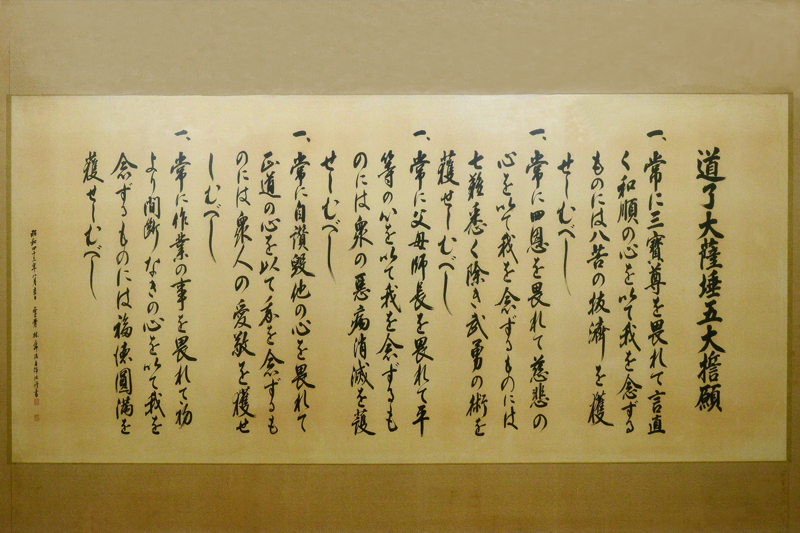 道了大薩埵五大誓願
一、常に三寳尊を畏れて言直
く和順の心を以て我を念ずる
ものには八苦の抜濟を獲
せしむべし
一、常に四恩を畏れて慈悲の
心を以て我を念ずるものには
七難悉く除き武勇の術を
獲せしむべし
一、常に父母師長を畏れて平
等の心を以て我を念ずるも
のには衆の惡病消滅を獲
せしむべし
一、常に自讃毀他の心を畏れて
正道の心を以て我を念ずるも
のには衆人の愛敬を獲せ
しむべし
一、常に作業の事を畏れて初
より間断なきの心を以て我を
念ずるものには福徳圓滿を
獲せしむべし
昭和四十三年八月吉日